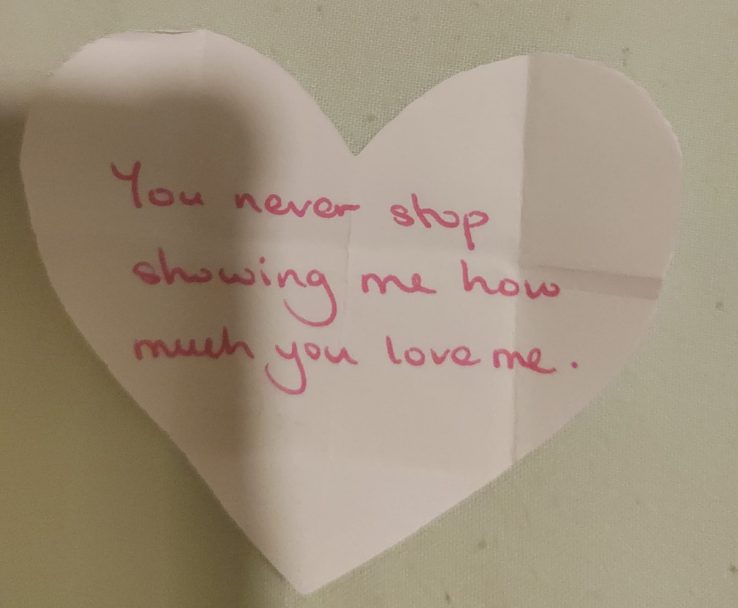 You never stop
showing me how
much you love me.